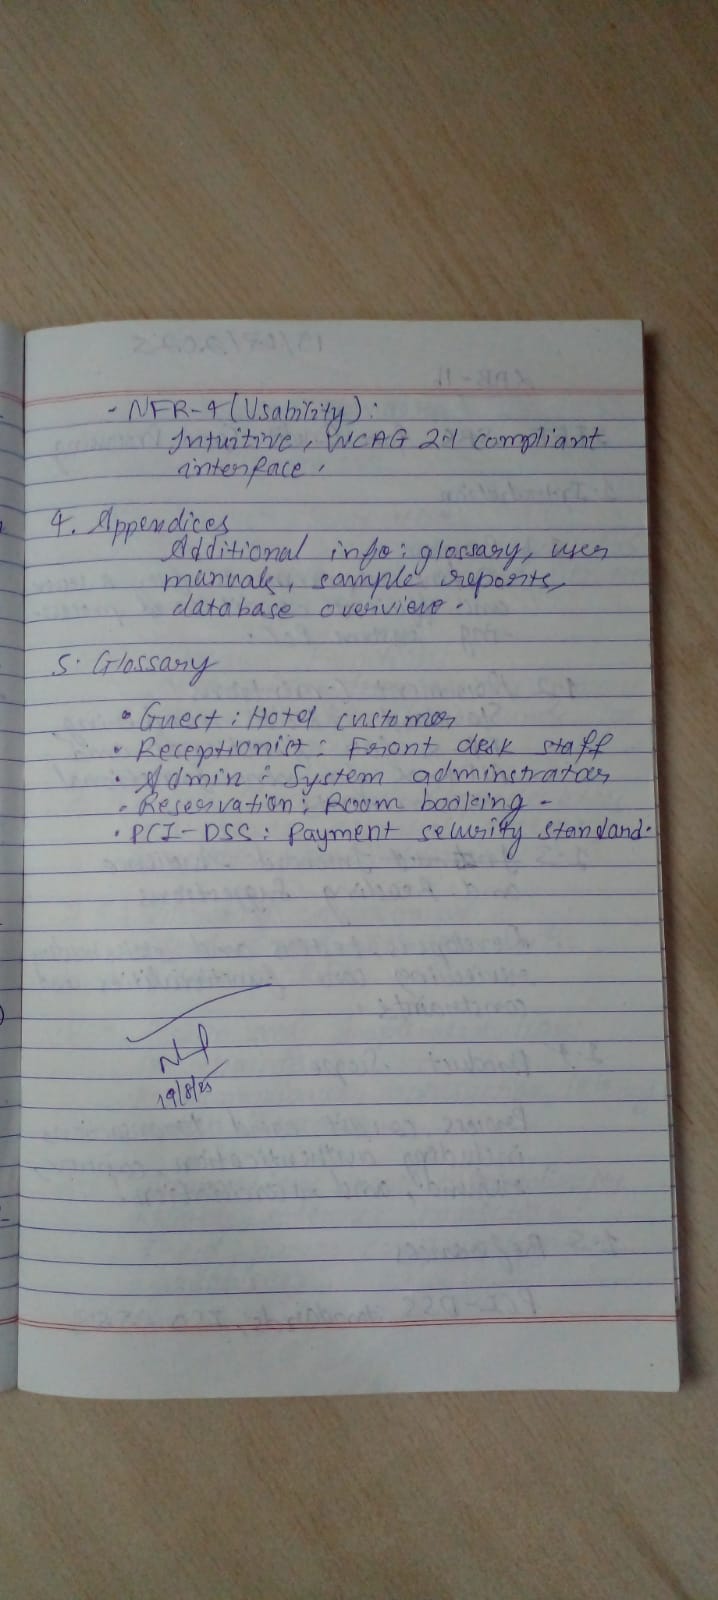 - NFR-4 (Usability):
Intuitive, WCAG 2.1 compliant
interface.
4. Appendices
Additional info: glossary, user
manuals, sample reports,
database overview.
5. Glossary
• Guest: Hotel customer
• Receptionist: Front desk staff
• Admin: System adminstrator
• Reservation: Room booking -
• PCI-DSS: Payment security standard.
19/8/25